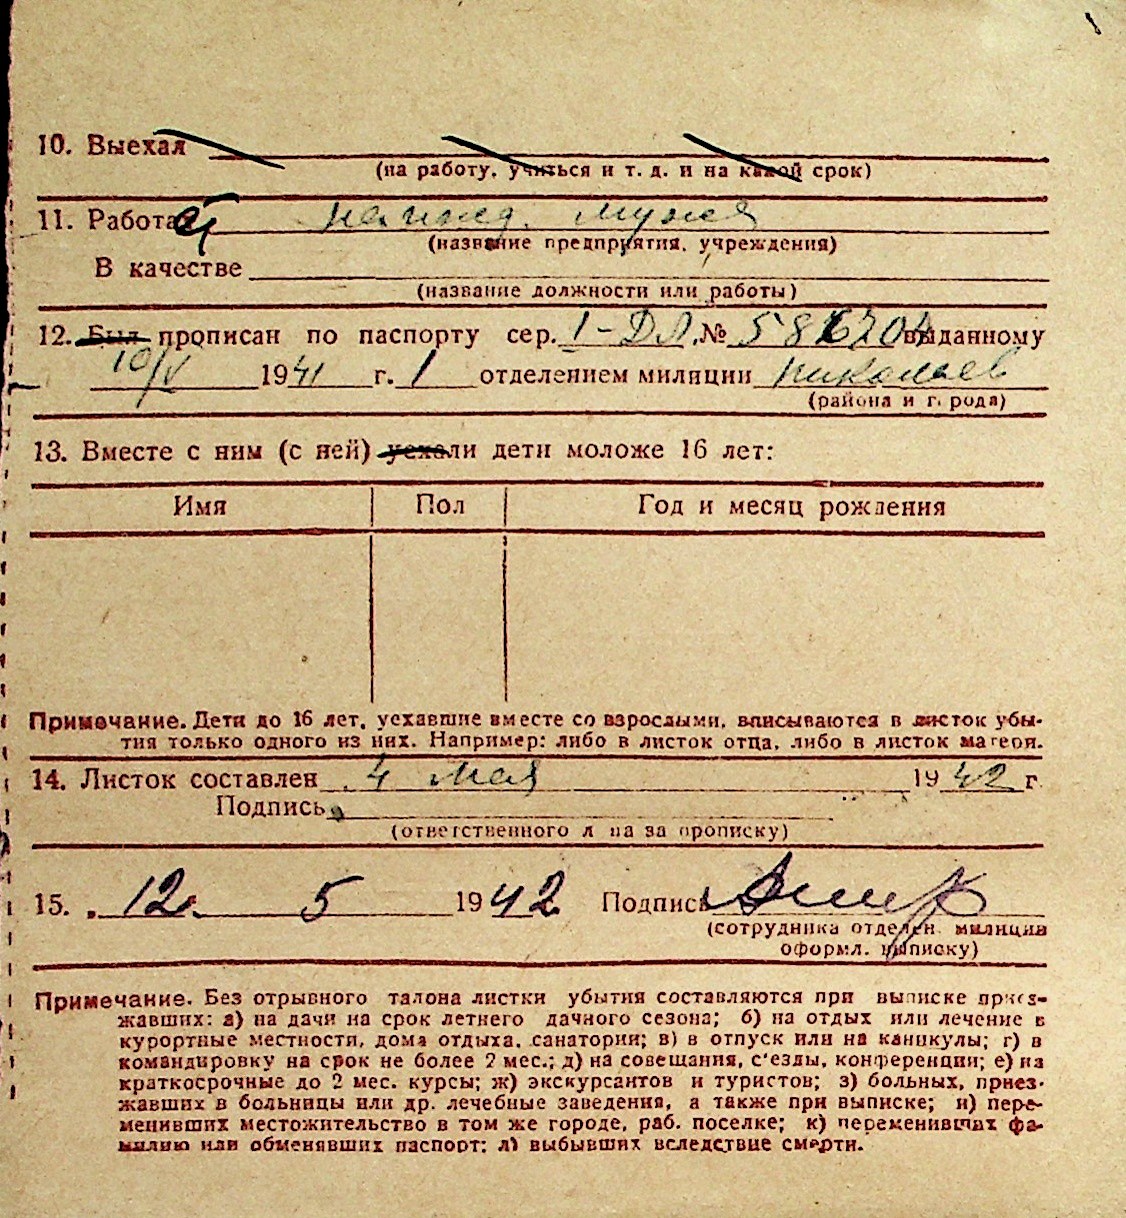 10. Выехал
(на работу, учиться и т. д. и на какой срок)
11. Работает на ижд. мужа
(название предприятия, учреждения)
В качестве
(название должности или работы)
12. Был прописан по паспорту сер. I-ДЛ № 586704 выданному
10/V 1941 г. 1 отделением милиции Николаев
(района и города)
13. Вместе с ним (с ней) уехали дети моложе 16 лет:
Имя Пол Год и месяц рождения
Примечание. Дети до 16 лет, уехавшие вместе со взрослыми, вписываются в листок убы-
тия только одного из них. Например: либо в листок отца, либо в листок матери.
14. Листок составлен 4 мая 1942 г.
Подпись
(ответственного лица за прописку)
15. 12. 5 1942 Подпись
(сотрудника отделен. милиции
оформл. выписку)
Примечание. Без отрывного талона листки убытия составляются при выписке приез-
жавших: а) на дачи на срок летнего дачного сезона; б) на отдых или лечение в
курортные местности, дома отдыха, санатории; в) в отпуск или на каникулы; г) в
командировку на срок не более 2 мес.; д) на совещания, с'езды, конференции; е) на
краткосрочные до 2 мес. курсы; ж) экскурсантов и туристов; з) больных, приез-
жавших в больницы или др. лечебные заведения, а также при выписке; и) пере-
менивших местожительство в том же городе, раб. поселке; к) переменивших фа-
милию или обменявших паспорт; л) выбывших вследствие смерти.